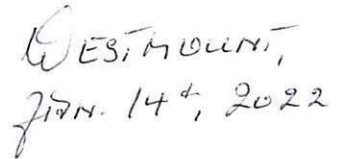 WESTMOUNT,
Jan. 14t, 2022